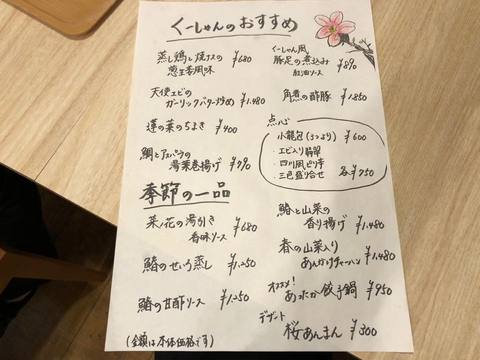 くーしゃんのおすすめ
蒸し鶏と焼けナスの
葱生姜風味 ¥680
天使エビの
ガーリックバター炒め ¥1,480
蓮の葉のちまき ¥400
鯛とアスパラの
湯葉巻揚げ
季節の一品
菜ノ花の湯引き
香味ソース ¥680
鰆のせいろ蒸し ¥1,250
鰆の甘酢ソース ¥1,250
(金額は本体価格です)
くーしゃん風
豚足の煮込み
紅油ソース ¥890
角煮の酢豚 ¥1,850
点心
小籠包(3つより) ¥600
・エビ入り翡翠
・四川風ピリ辛
・三色盛り合せ 各¥750
鰆と山菜の
香り揚げ ¥1,480
春の山菜入り
あんかけチャーハン ¥1,480
オススメ!
あったか餃子鍋 ¥950
デザート
桜あんまん ¥300